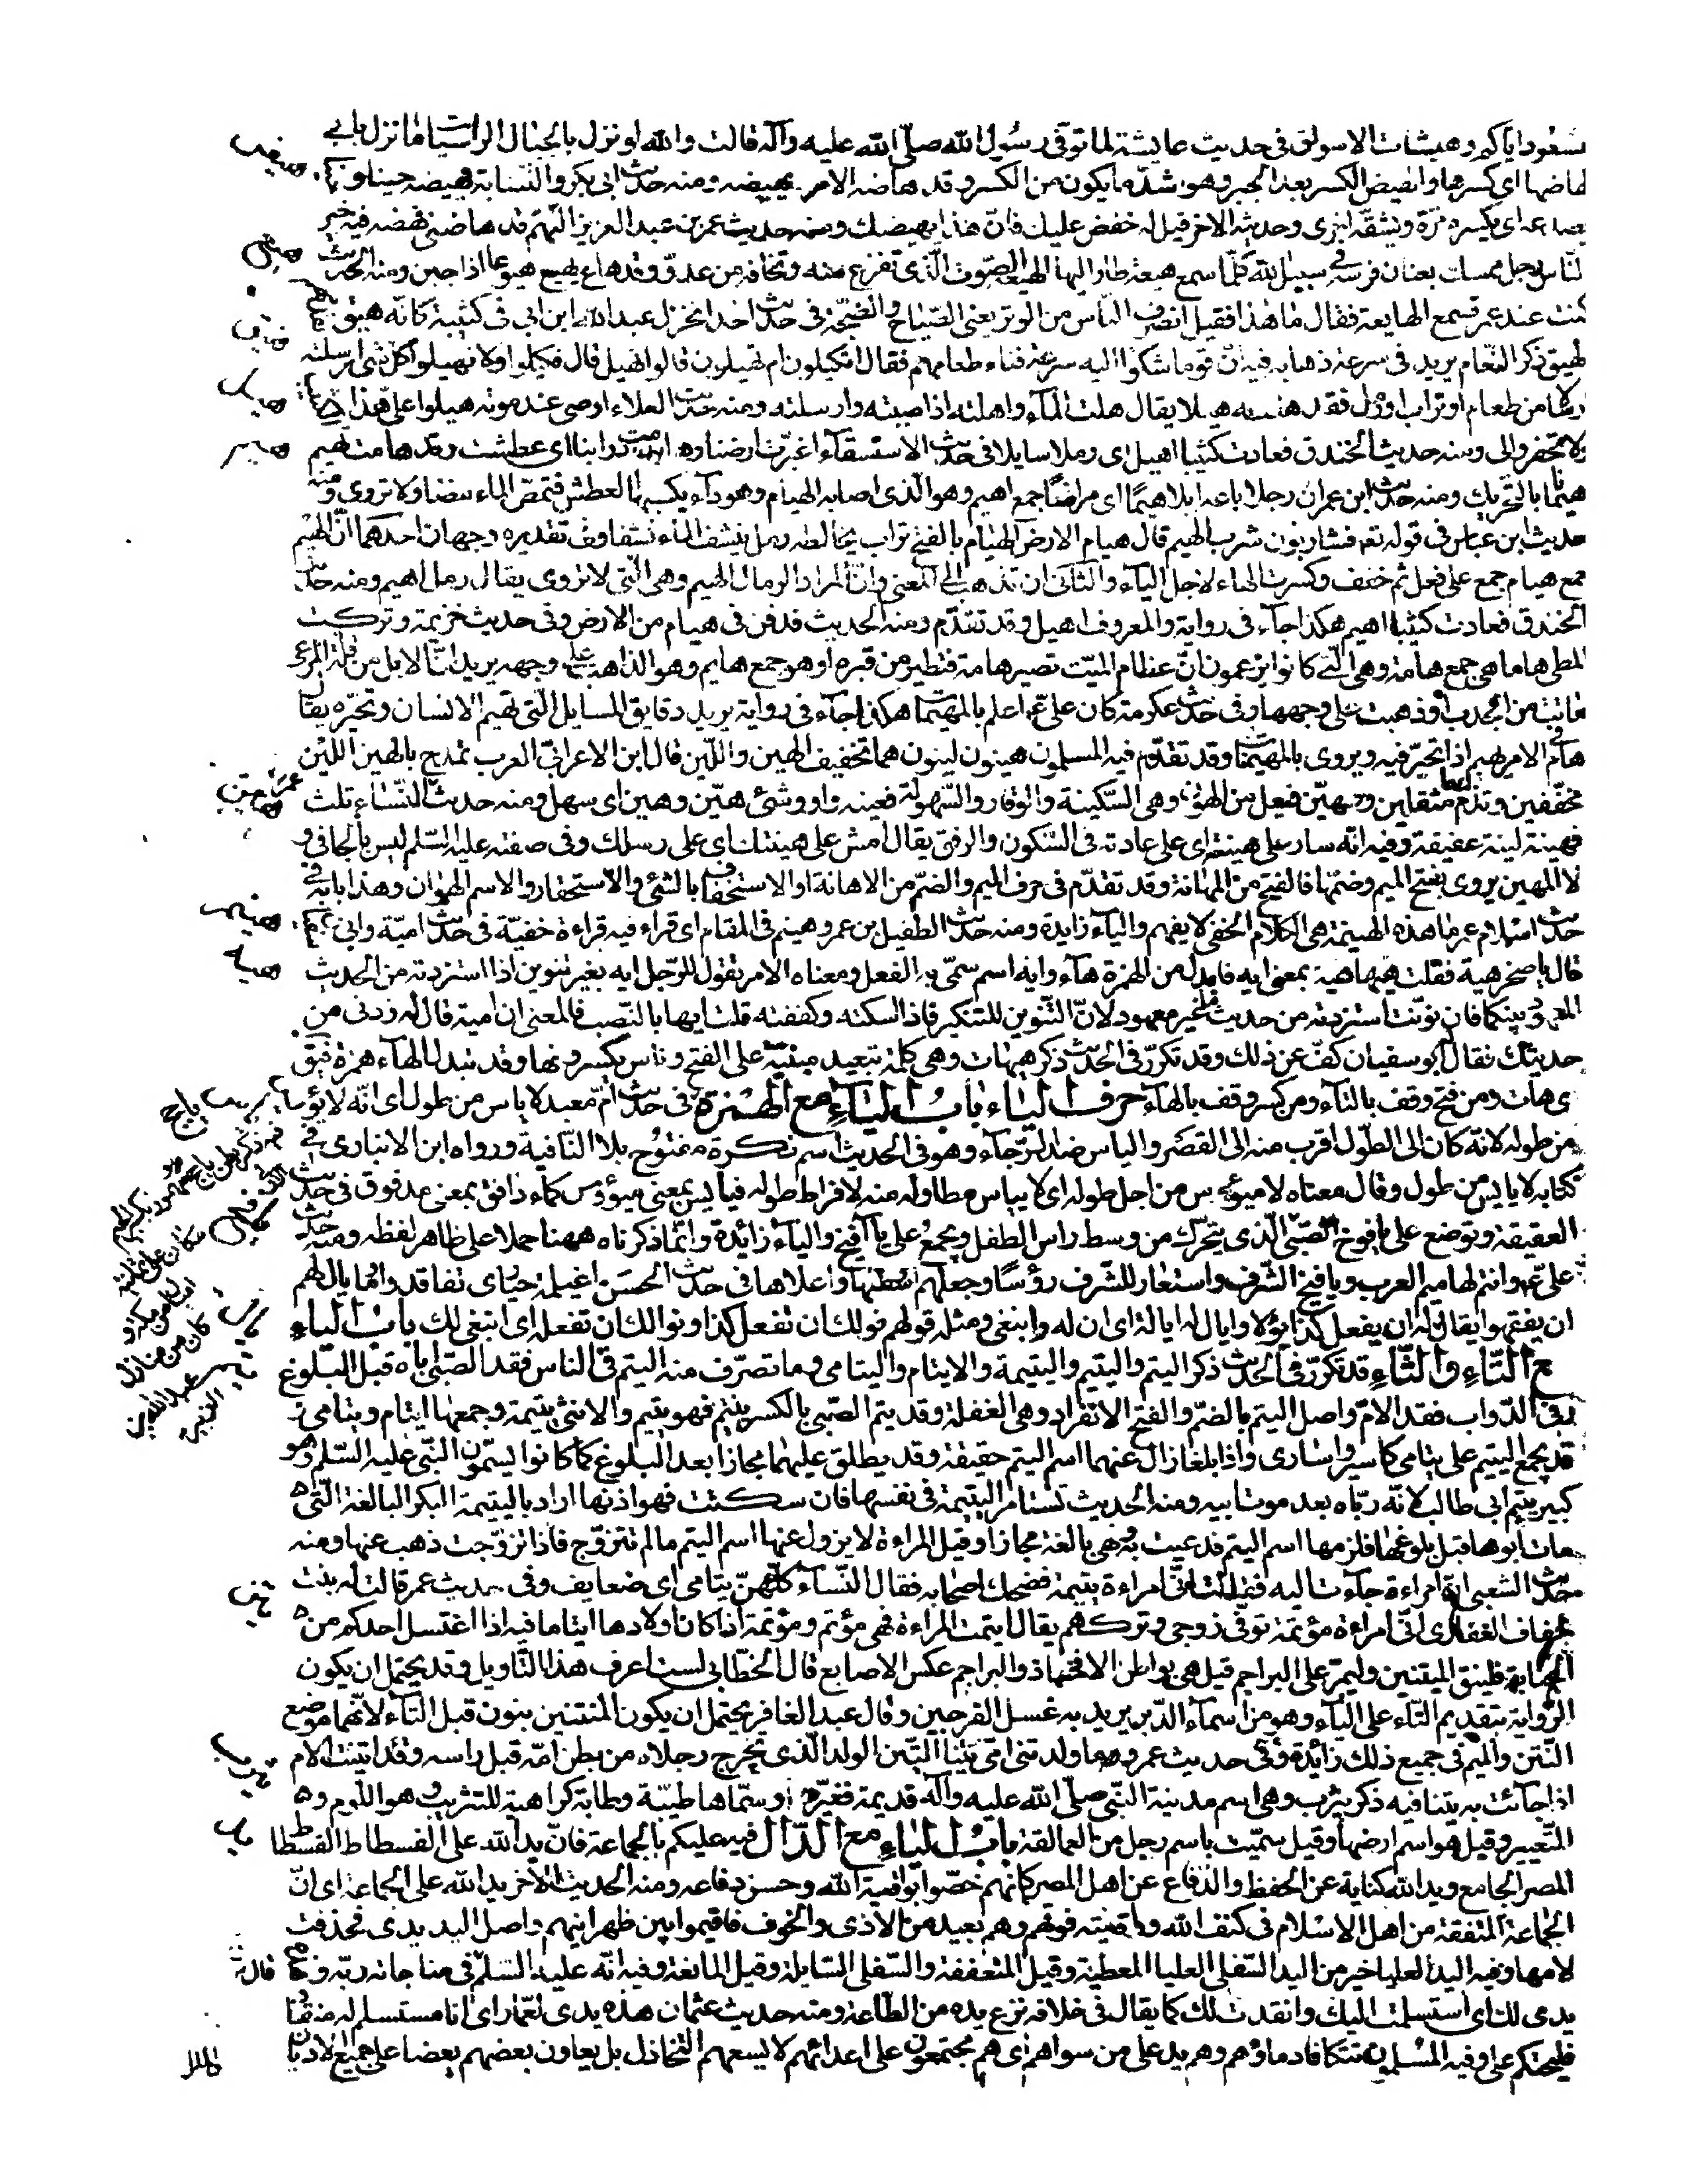 مسعود اياكم وهيشات الاسواق في حديث عايشة لما توفي رسول الله صلى الله عليه وآله قالت والله لو نزل بالجبال الراسيات ما نزل بابي
لهاضها اى كسرها والهيض الكسر بعد الجبر وهو اشد ما يكون من الكسر وقد هاضه الامر يهيضه ومنه حديث ابى بكر والنسابة يهيضه حينا و
يصدعه اى يكسره مرة ويشقه اخرى وحديثه الاخر قيل له خفض عليك فان هذا يهيضك ومنه حديث عمر بن عبد العزيز اللهم قد هاضني فهضه فيه خير
الناس رجل ممسك بعنان فرسه في سبيل الله كلما سمع هيعة طار اليها الهيعة الصوت الذى تفزع منه وتخافه من عدو وقد هاع يهيع هيوعا اذا جبن ومنه الحديث
كنت عند عمر فسمع الهايعة فقال ما هذا فقيل انصرف الناس من الوتر يعنى الصياح والضجة في حديث احد انخزل عبد الله ابن ابى في كتيبة كانه هيق
الهيق ذكر النعام يريد في سرعة ذهابه فيه ان قوما شكوا اليه سرعة فناء طعامهم فقال اتكيلون ام تهيلون قالوا نهيل قال فكيلوا ولا تهيلوا كل شئ ارسلته
ارسالا من طعام او تراب او رمل فقد هلته هيلا يقال هلت الماء واهلته اذا صببته وارسلته ومنه حديث العلاء اوصى عند موته هيلوا على هذا
ولا تحفروا لى ومنه حديث الخندق فعادت كثيبا اهيل اى رملا سايلا في حديث الاستسقاء اغبرت ارضنا وهامت دوابنا اى عطشت وقد هامت تهيم
هيمانا بالتحريك ومنه حديث ابن عمر ان رجلا باعه ابلا هيما اى مراضا جمع اهيم وهو الذى اصابه الهيام وهو داء يكسبها العطش فتمص الماء مصا ولا تروى ومنه
حديث ابن عباس في قوله تع فشاربون شرب الهيم قال هيام الارض الهيام بالفتح تراب يخالطه رمل ينشف الماء نشفا وفي تقديره وجهان احدهما ان الهيم
جمع هيام جمع على فعل ثم خفف وكسرت الهاء لاجل الياء والثانى ان تذهب الى المعنى وان المراد الرمال الهيم وهي التى لا تروى يقال رمل اهيم ومنه حديث
الخندق فعادت كثيبا اهيم هكذا جاء في رواية والمعروف اهيل وقد تقدم ومنه الحديث فدفن في هيام من الارض وفي حديث خزيمة وتركت
المطى هاما هي جمع هامة وهي التى كانوا يزعمون ان عظام الميت تصير هامة فتطير من قبره او هو جمع هايم وهو الذاهب على وجهه يريد ان الابل من قلة المرعى
ماتت من الجدب او ذهبت على وجهها وفي حديث عكرمة كان على ع اعلم بالمهيمات هكذا جاء في رواية يريد دقايق المسايل التى تهيم الانسان وتحيره يقال
هام في الامر يهيم اذا تحير فيه ويروى بالمهيمنات وقد تقدم فيه المسلمون هينون لينون هما تخفيف الهين واللين قال ابن الاعرابى العرب تمدح بالهين اللين
مخففين وتذم بهما مثقلين وهين فيعل من الهون وهي السكينة والوقار والسهولة فعينه واو وشئ هين وهين اى سهل ومنه حديث عمر النساء ثلث
فهينة لينة عفيفة وفيه انه سار على هينته اى على عادته في السكون والرفق يقال امش على هينتك اى على رسلك وفي صفته عليه السلم ليس بالجافي و
لا المهين يروى بفتح الميم وضمها فالفتح من المهانة وقد تقدم في حرف الميم والضم من الاهانة اى الاستخفاف بالشئ والاستحقار والاسم الهوان وهذا بابه في
حديث اسلام عمر ما هذه الهينمة هي الكلام الخفي لا يفهم والياء زايدة ومنه حديث الطفيل بن عمرو هينم في المقام اى قراء فيه قراءة خفية في حديث امية وابى
قال يا صخر هيه فقلت هيها هيه بمعنى ايه فابدل من الهمزة هاء وايه اسم سمى به الفعل ومعناه الامر تقول للرجل ايه بغير تنوين اذا استزدته من الحديث
المعهود بينكما فان نونت استزدته من حديث ما غير معهود لان التنوين للتنكير فاذا اسكته وكففته قلت ايها بالنصب فالمعنى ان امية قال له زدنى من
حديثك فقال ابو سفيان كف عن ذلك وقد تكرر في الحديث ذكر هيهات وهي كلمة تبعيد مبنية على الفتح وناس يكسرونها وقد تبدل الهاء همزة فيق
ايهات ومن فتح وقف بالتاء ومن كسر وقف بالهاء حرف الياء باب الياء مع الهمزة في حديث ام معبد لا ياس من طول اى انه لا يؤيس
من طوله لانه كان الى الطول اقرب منه الى القصر والياس ضد الرجاء وهو في الحديث اسم نكرة مفتوح بلا النافية ورواه ابن الانبارى في
كتابه لا يايس من طول وقال معناه لا ميؤس من اجل طوله اى لا ييأس مطاوله منه لافراط طوله فيايس بمعنى ميؤوس كماء دافق بمعنى مدفوق في حديث
العقيقة وتوضع على يافوخ الصبى الذى يتحرك من وسط راس الطفل ويجمع على يآفيخ والياء زائدة وانما ذكرناه ههنا حملا على ظاهر لفظه ومنه حديث
على ع وانتم لهاميم العرب ويآفيخ الشرف واستعار للشرف رؤسا وجعلهم وسطها واعلاها في حديث الحسن اغيلمة حيارى تفاقدوا ما يال لهم
ان يفقهوا يقال يال له ان يفعل كذا يؤلا وايال له ايالة اى ان له وانبغى ومثله قولهم نولك ان تفعل كذا ونوالك ان تفعله اى انبغى لك باب الياء
مع التاء والثاء قد تكرر في الحديث ذكر اليتم واليتيم واليتيمة والايتام واليتامى وما تصرف منه اليتم في الناس فقد الصبى اباه قبل البلوغ
وفي الدواب فقد الام واصل اليتم بالضم والفتح الانفراد وهي الغفلة وقد يتم الصبى بالكسر ييتم فهو يتيم والانثى يتيمة وجمعها ايتام ويتامى و
قد يجمع اليتيم على يتامى كاسير واسارى واذا بلغا زال عنهما اسم اليتم حقيقة وقد يطلق عليهما مجازا بعد البلوغ كما كانوا يسمون النبى عليه السلم وهو
كبير يتيم ابى طالب لانه رباه بعد موت ابيه ومنه الحديث تستامر اليتيمة في نفسها فان سكتت فهو اذنها اراد باليتيمة البكر البالغة التى
مات ابوها قبل بلوغها فلزمها اسم اليتم فدعيت به وهي بالغة مجازا وقيل المراءة لا يزول عنها اسم اليتم ما لم تتزوج فاذا تزوجت ذهب عنها ومنه
حديث الشعبى ان امراءة جاءت اليه فقالت انى امراءة يتيمة فضحك اصحابه فقال النساء كلهن يتامى اى ضعايف وفي حديث عمر قالت له بنت
خفاف الغفارى انى امراءة مؤتمة توفي زوجى وتركهم يقال ايتمت المراءة فهي مؤتم ومؤتمة اذا كان اولادها ايتاما فيه اذا اغتسل احدكم من
الجنابة فلينق الميتنين وليمر على البراجم قيل هي بواطن الافخاذ والبراجم عكس الاصابع قال الخطابى لست اعرف هذا التاويل وقد يحتمل ان يكون
الرواية بتقديم التاء على الياء وهو من اسماء الدبر يريد به غسل الفرجين وقال عبد الغافر يحتمل ان يكون المنتنين بنون قبل التاء لانهما موضع
النتن والميم في جميع ذلك زائدة وفي حديث عمرو ما ولدتنى امى يتنا اليتن الولد الذى تخرج رجلاه من بطن امه قبل راسه وقد ايتنت الام
اذا جائت به يتنا فيه ذكر يثرب وهي اسم مدينة النبى صلى الله عليه وآله قديمة فغيرها وسماها طيبة وطابة كراهية للتثريب وهو اللوم و
التعيير وقيل هو اسم ارضها وقيل سميت باسم رجل من العمالقة باب الياء مع الدال فيه عليكم بالجماعة فان يد الله على الفسطاط الفسطاط
المصر الجامع ويد الله كناية عن الحفظ والدفاع عن اهل المصر كانهم خصوا بواقية الله وحسن دفاعه ومنه الحديث الاخر يد الله على الجماعة اى ان
الجماعة المتفقة من اهل الاسلام في كنف الله ووقايته فوقهم وهم بعيد من الاذى والخوف فاقيموا بين ظهرانيهم واصل اليد يدى فحذفت
لامها وفيه اليد العليا خير من اليد السفلى العليا المعطية وقيل المتعففة والسفلى السايلة وقيل المانعة وفيه انه عليه السلم في مناجاته ربه وهذه
يدى لك اى استسلمت اليك وانقدت لك كما يقال في خلافه نزع يده من الطاعة ومنه حديث عثمان هذه يدى لعمار اى انا مستسلم له منقاد
فليحتكم على وفيه المسلمون تتكافا دماؤهم وهم يد على من سواهم اى هم مجتمعون على اعدائهم لا يسعهم التخاذل بل يعاون بعضهم بعضا على جميع الاديان